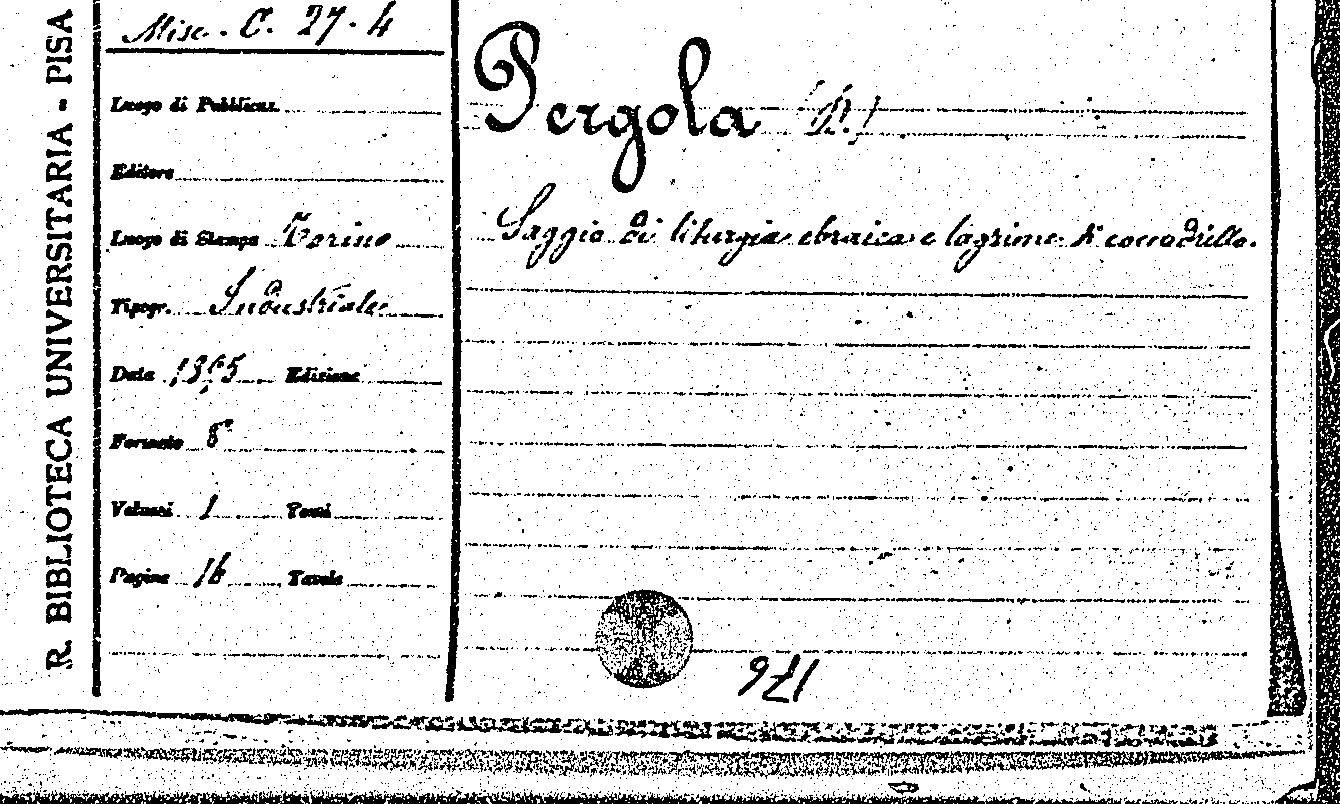 R. BIBLIOTECA UNIVERSITARIA - PISA
Misc. C. 27. 4
Luogo di Pubblicaz.
Editore
Luogo di Stampa Torino
Tipogr. Industriale
Data 1865 Edizione
Formato 8°
Volumi 1 Tomi
Pagine 16 Tavole
Pergola
Saggio di liturgia ebraica e lagrime di coccodrillo.